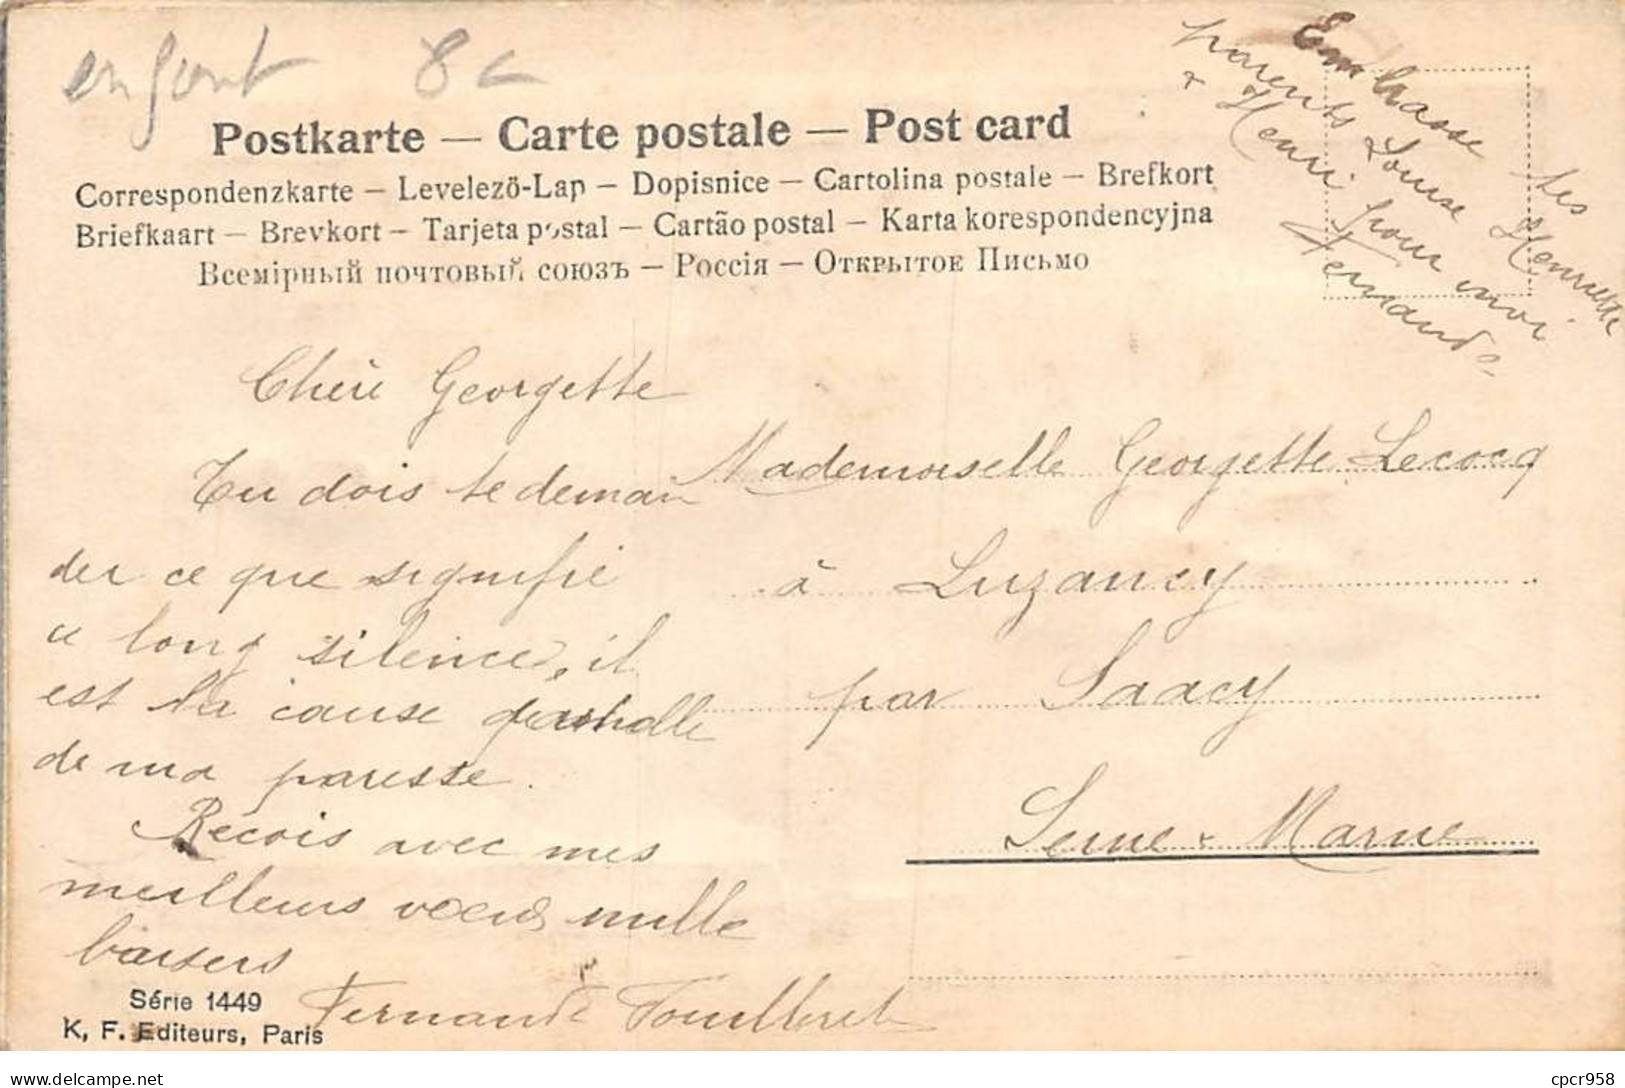 enfant 8c
Embrasse tes
parents Louise Henriette
+ Henri pour moi
Fernande
Postkarte — Carte postale — Post card
Correspondenzkarte — Levelezö-Lap — Dopisnice — Cartolina postale — Brefkort
Briefkaart — Brevkort — Tarjeta postal — Cartão postal — Karta korespondencyjna
Всемірный почтовый союзъ — Россія — Открытое Письмо
Chère Georgette
Tu dois te deman
der ce que signifie
ce long silence, il
est la cause
de ma paresse.
Recois avec mes
meilleurs vœux mille
baisers
Fernande
Mademoiselle Georgette Lecocq
à Luzancy
par Saacy
Seine & Marne
Série 1449
K, F. Editeurs, Paris
delcampe.net
cpcr958